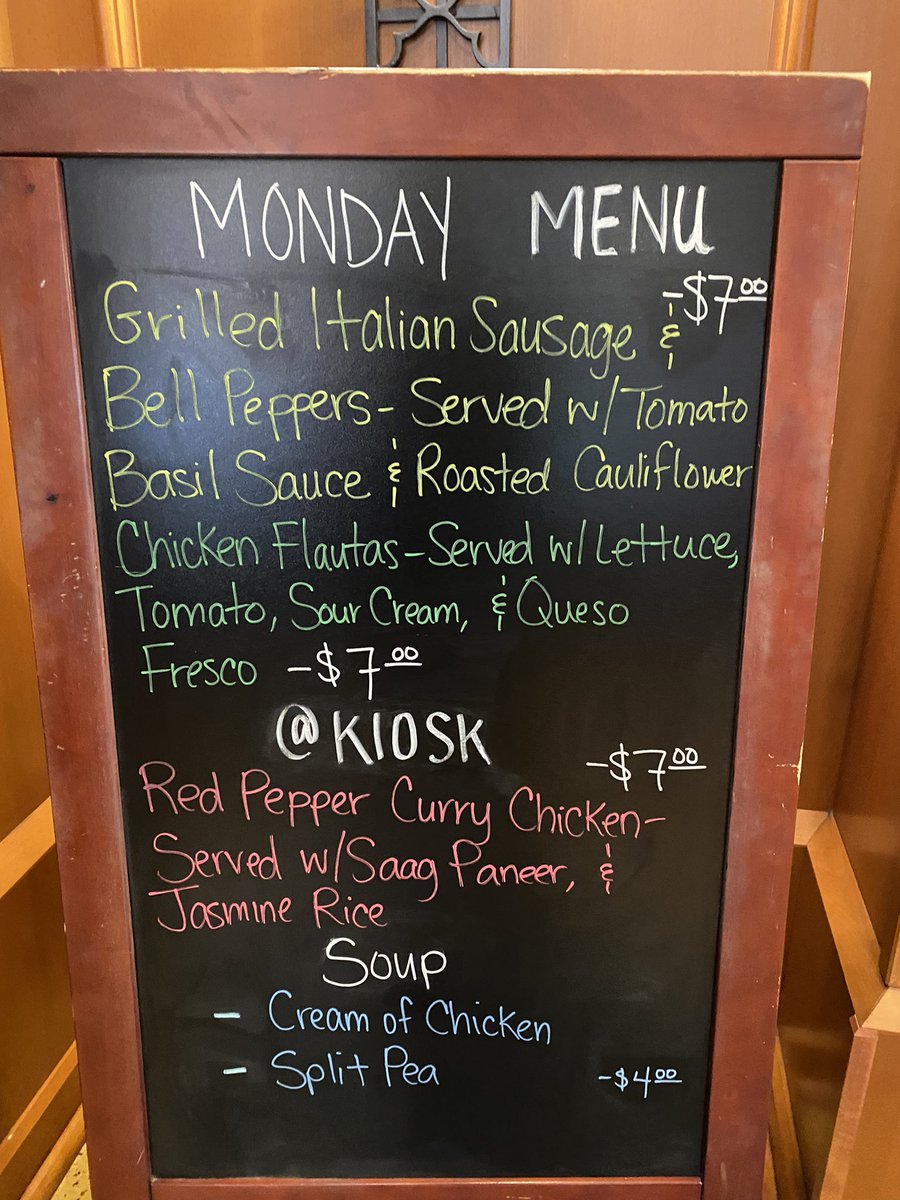 MONDAY MENU
Grilled Italian Sausage & -$7.00
Bell Peppers- Served w/Tomato
Basil Sauce & Roasted Cauliflower
Chicken Flautas-Served w/Lettuce,
Tomato, Sour Cream, & Queso
Fresco -$7.00
@KIOSK
-$7.00
Red Pepper Curry Chicken-
Served w/Saag Paneer, &
Jasmine Rice
Soup
- Cream of Chicken
- Split Pea -$4.00